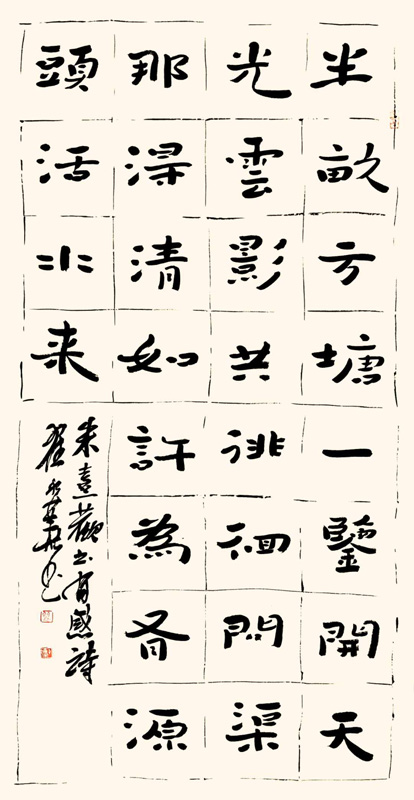 半畝方塘一鑒開天
光雲影共徘徊問渠
那淂清如許為有源
頭活水来
朱熹觀书有感詩